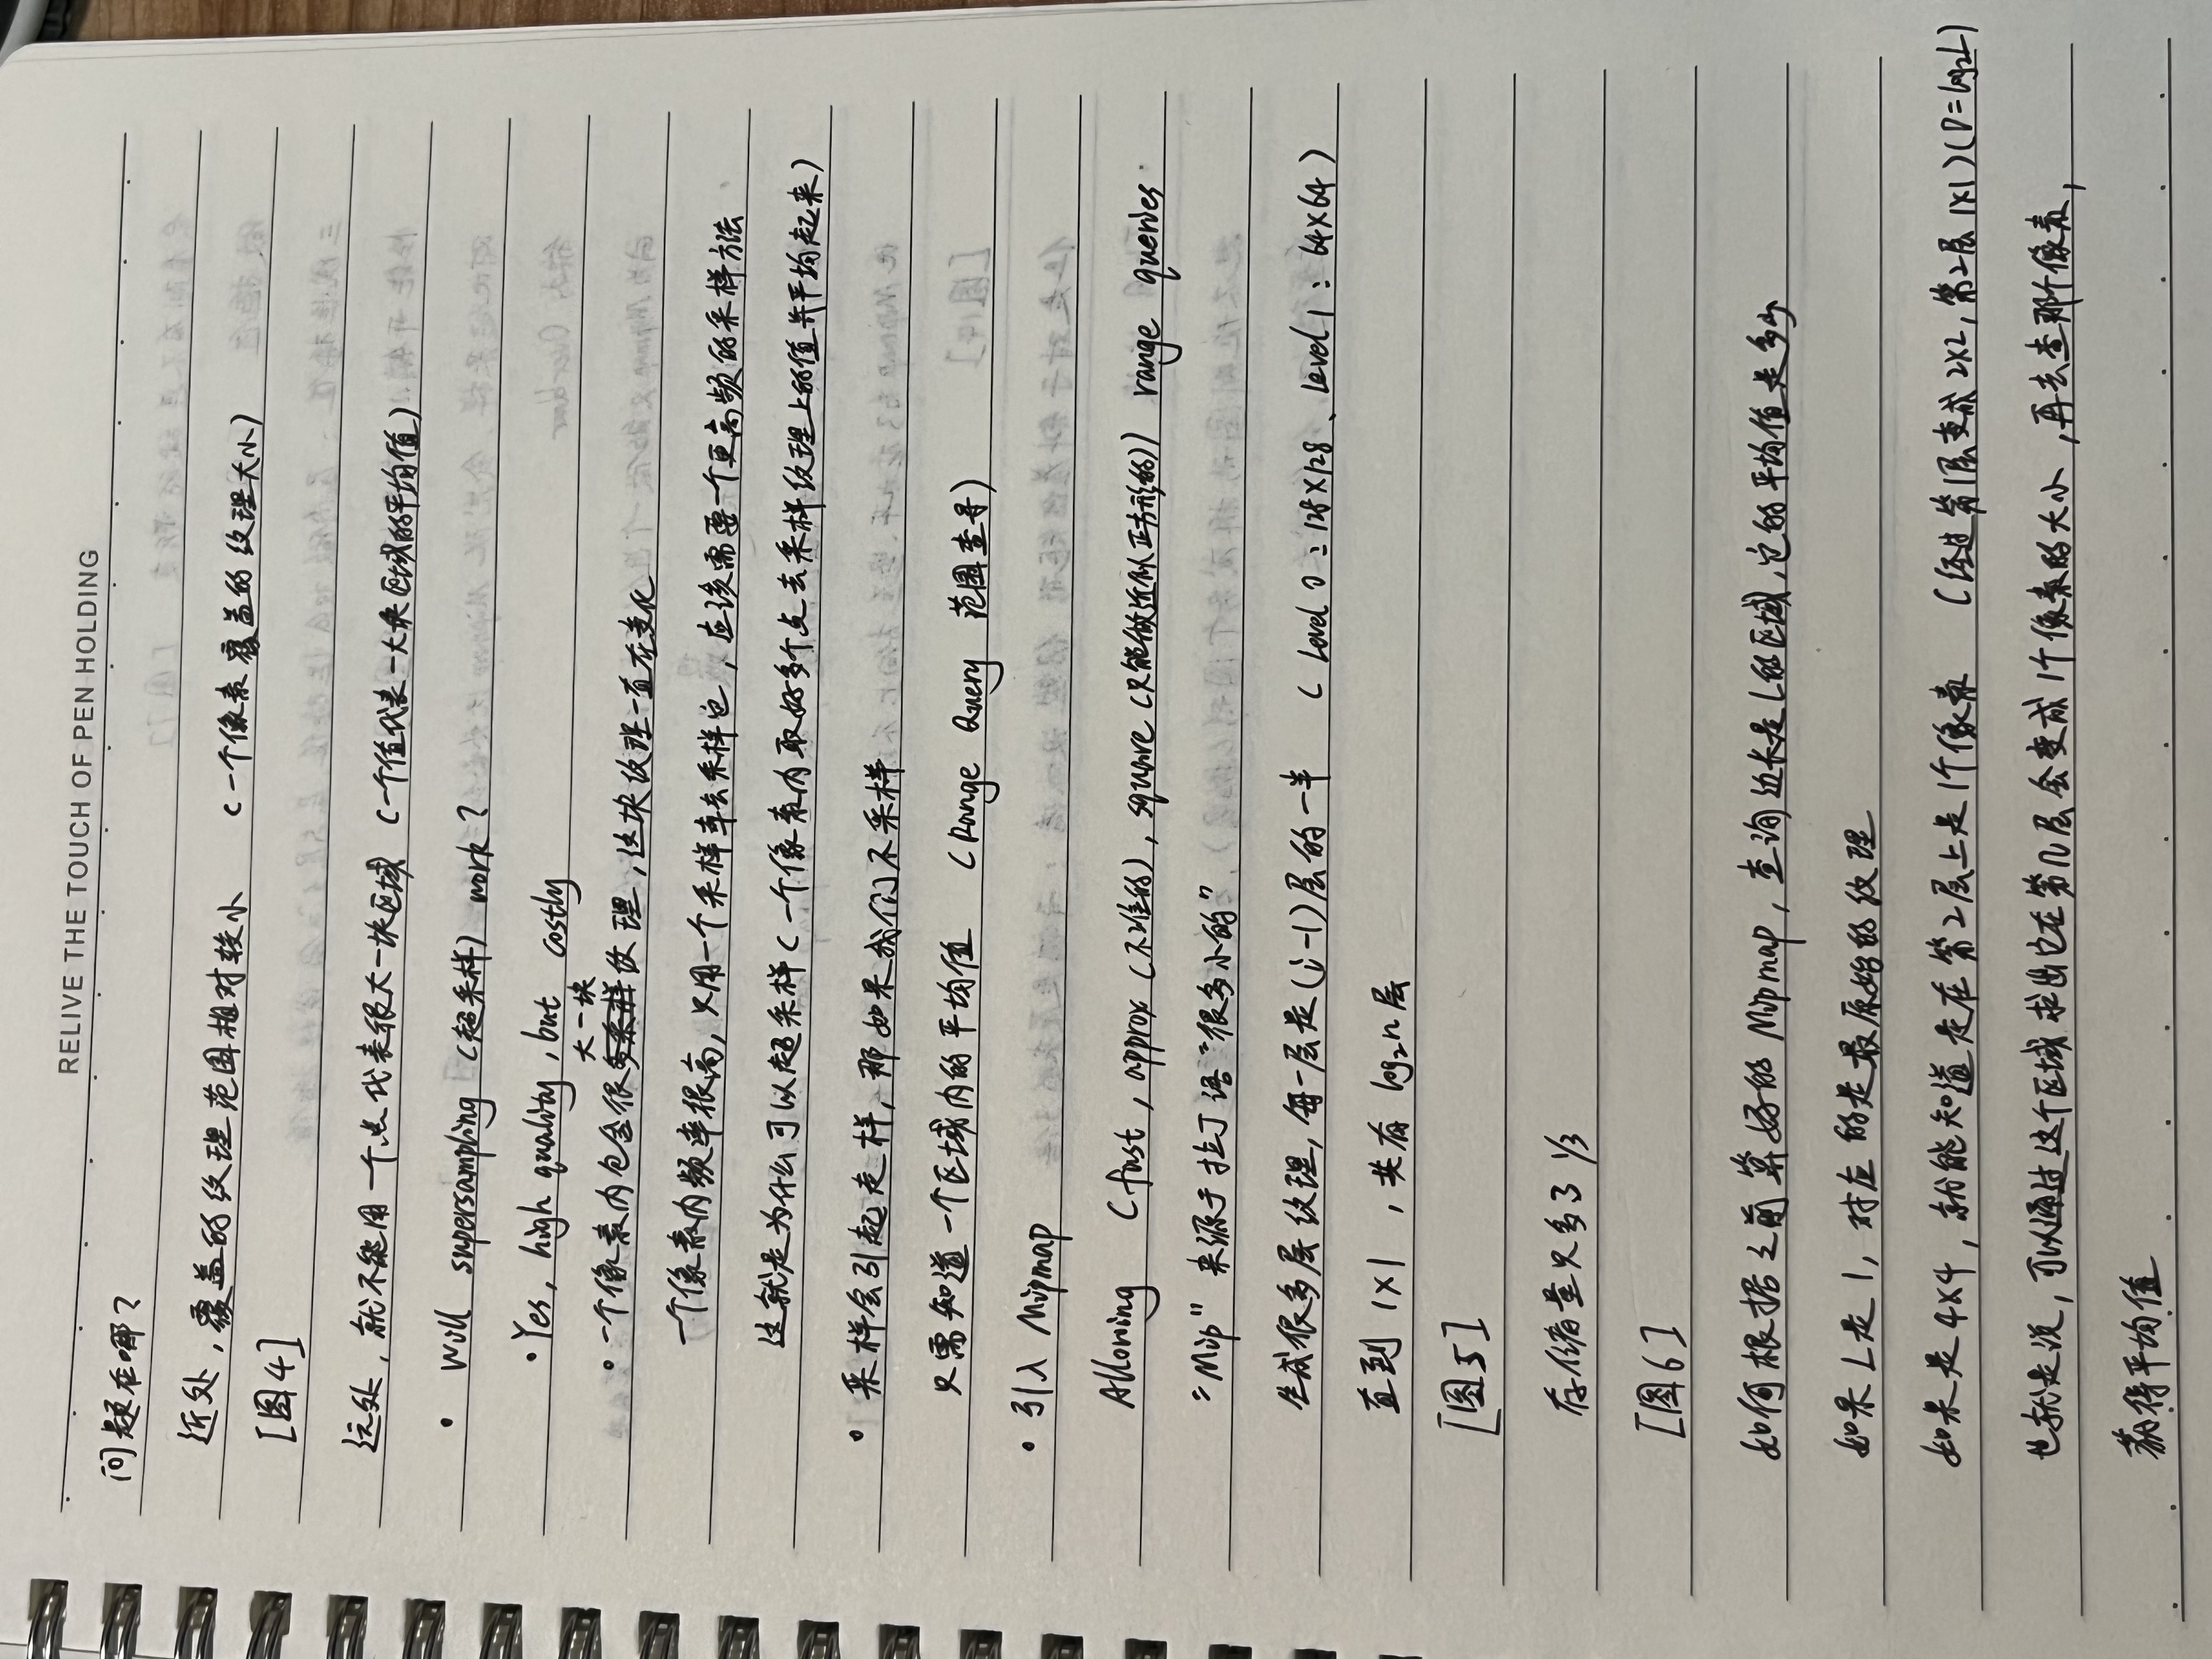 RELIVE THE TOUCH OF PEN HOLDING
问题在哪?
近处,覆盖的纹理范围相对较小 (一个像素覆盖的纹理大小)
[图4]
远处,就不能用一个点代表很大一块区域 (一个值代表一大块区域的平均值)
· Will supersampling (超采样) work?
· Yes, high quality, but costly
· 一个像素内包含很大一块纹理,这块纹理一直在变化
一个像素内频率很高,只用一个采样率去采样它,应该需要一个更高频的采样方法
这就是为什么可以超采样(一个像素内取好多个点去采样纹理上的值并平均起来)
· 采样会引起走样,那如果我们不采样
只需知道一个区域内的平均值 (Range Query 范围查寻)
· 引入 Mipmap
Allowing (fast, approx (不准的), square (只能做近似正方形的)) range queries
"Mip" 来源于拉丁语"很多小的"
生成很多层纹理,每一层是(i-1)层的一半 (Level 0: 128×128、Level 1: 64×64)
直到 1×1,共有 log₂n 层
[图5]
存储量只多了 1/3
[图6]
如何根据之前算好的 Mipmap,查询边长是L的区域,它的平均值是多少
如果L是1,对应的是最原始的纹理
如果是4×4,就能知道是在第2层上是1个像素 (经过第1层变成2×2,第2层1×1)(D=log₂L)
也就是说,可以通过这个区域求出它在第几层会变成1个像素的大小,再去查那个像素,
获得平均值